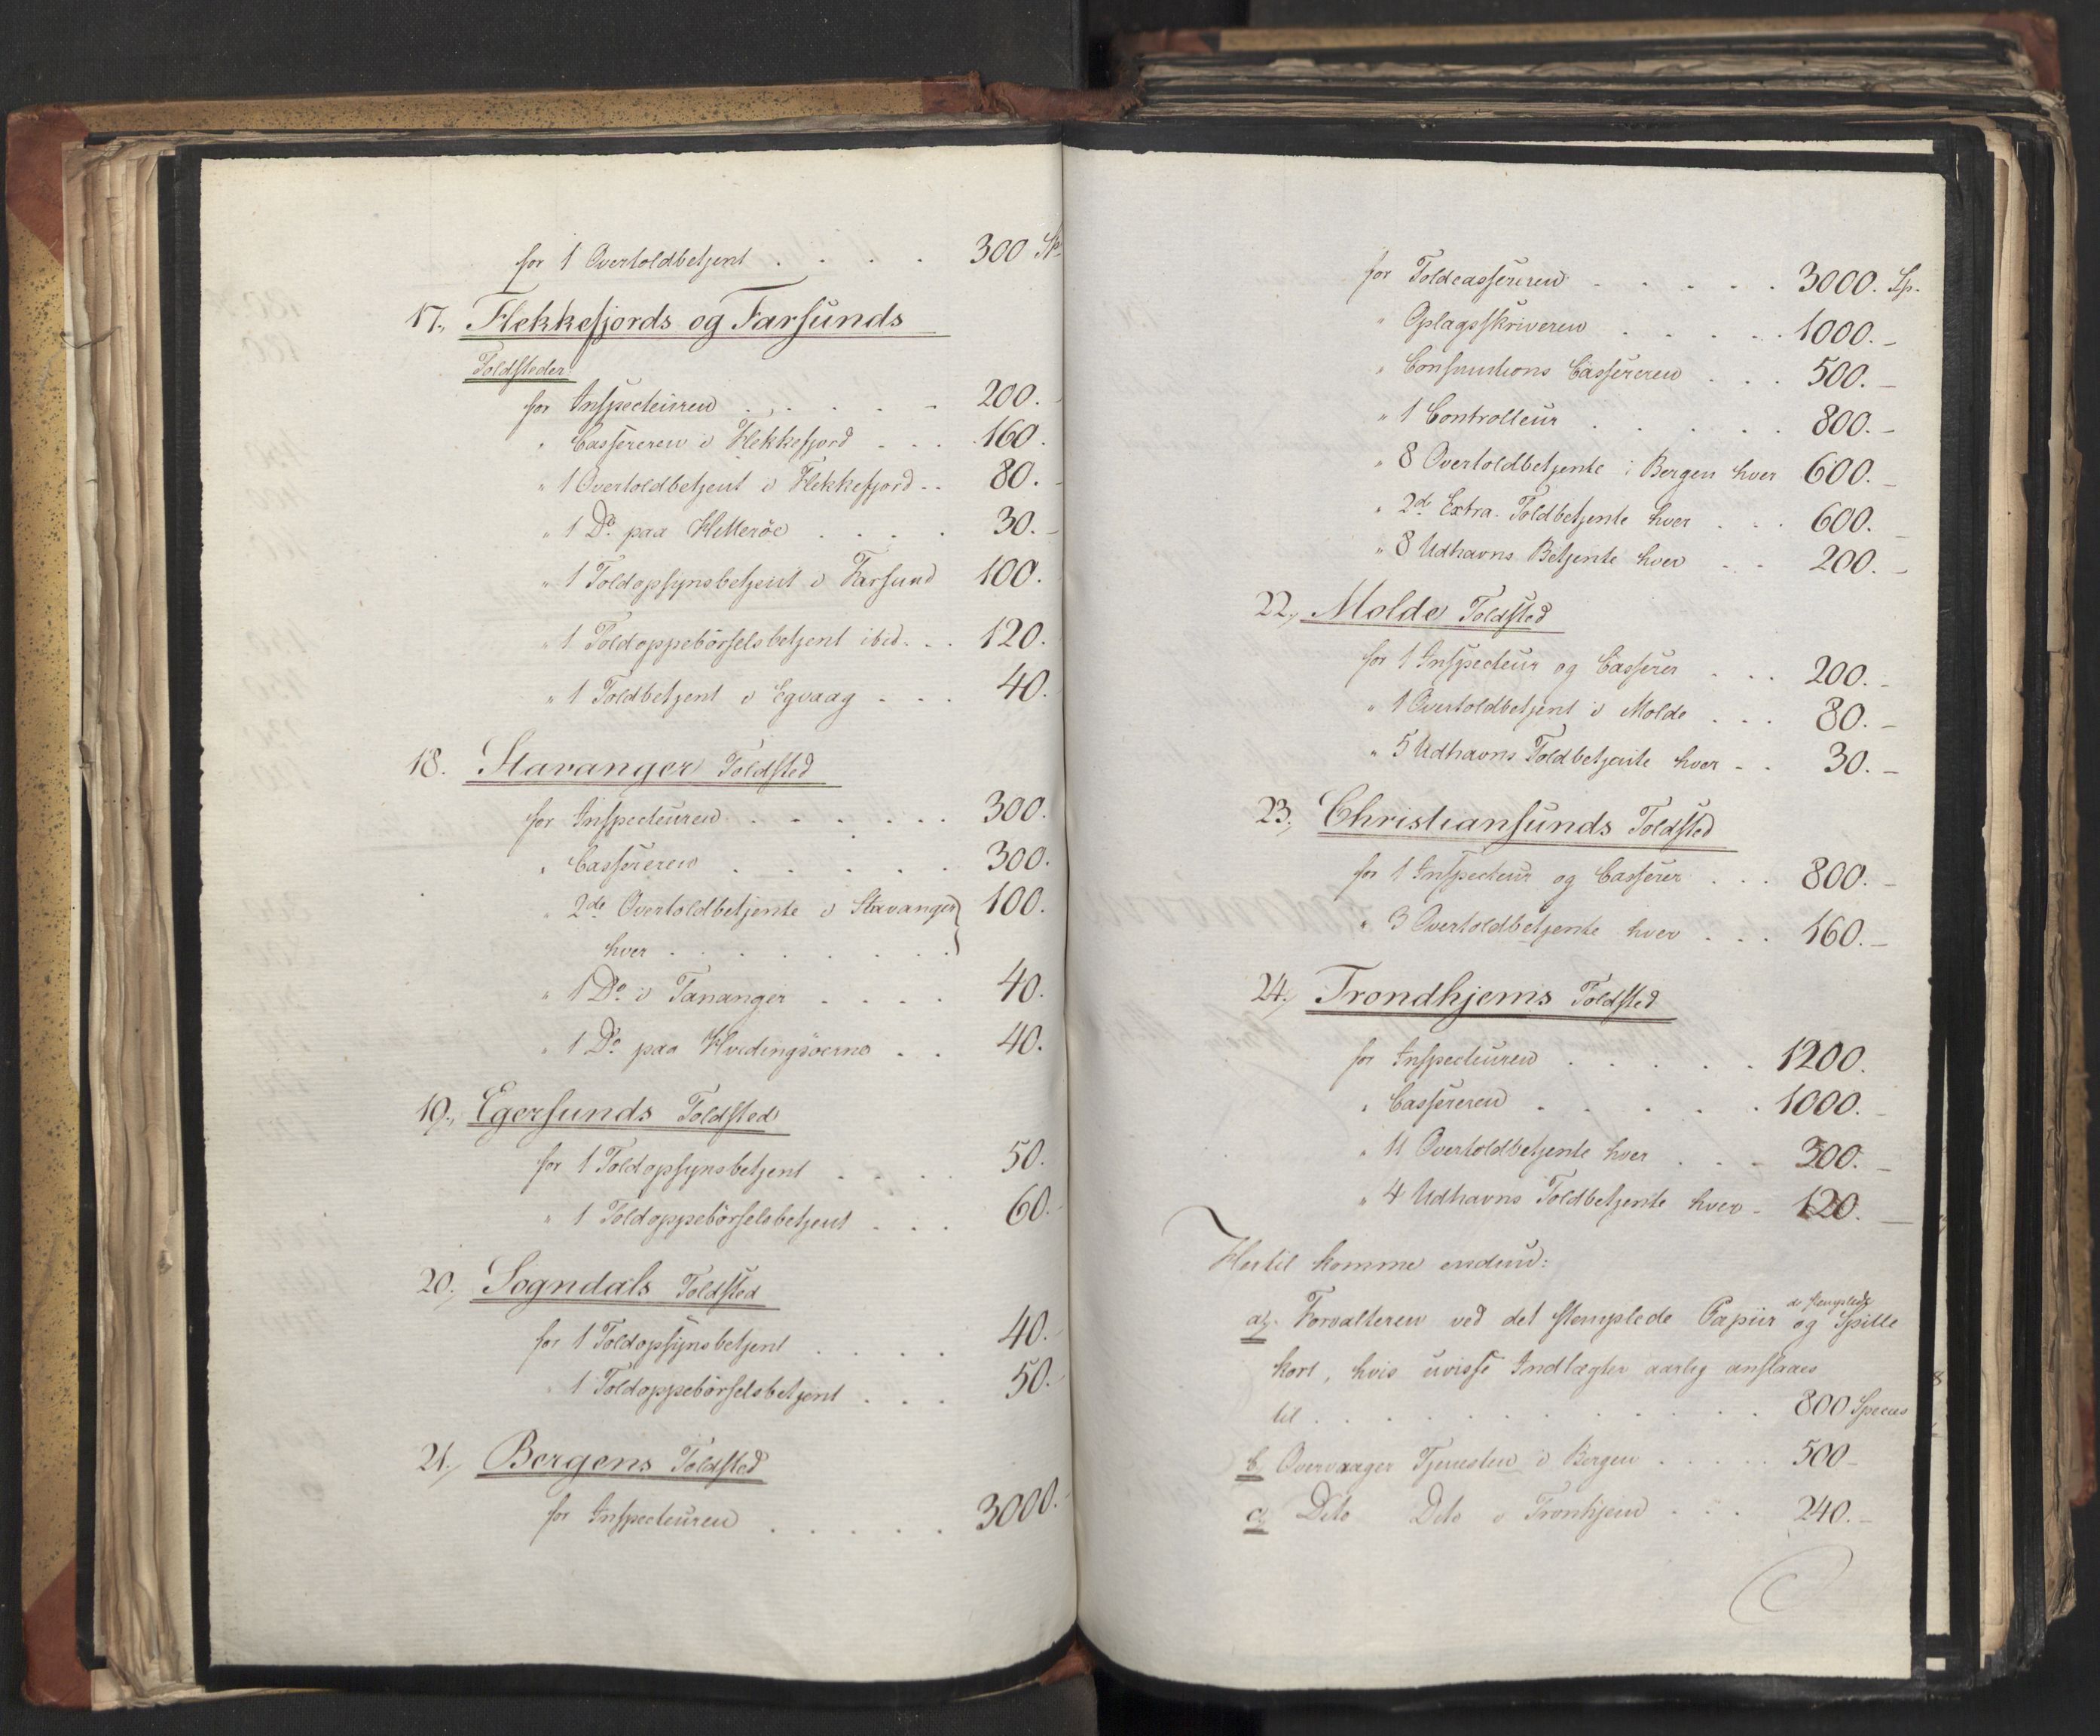 for 1 Overtoldbetjent . . . . 300 Sp
17., Flekkefjords og Farsunds
Toldsteder:
for Inspecteuren . . . . . 200.
" Cassereren i Flekkefjord . . . 160.
" 1 Overtoldbetjent i Flekkefjord . . 80.
" 1 Do. paa Hitteröe . . . . 30.
" 1 Toldopsynsbetjent i Farsund 100.
" 1 Toldoppebörselsbetjent ibid. . . 120.
" 1 Toldbetjent i Egvaag . . . 40.
18. Stavanger Toldsted
for Inspecteuren . . . . . . 300.
" Cassereren . . . . . 300.
" 2de Overtoldbetjente i Stavanger } 100.
hver . . . . . . .
" 1 Do. i Tananger . . . . 40.
" 1 Do. paa Hvidingsöerne . . 40.
19., Egersunds Toldsted
for 1 Toldopsynsbetjent . . . . 50.
" 1 Toldoppebörselsbetjent . . . 60.
20., Sogndals Toldsted
for 1 Toldopsynsbetjent . . . . 40.
" 1 Toldoppebörselsbetjent . . . 50.
21., Bergens Toldsted
for Inspecteuren . . . . . 3000.
for Toldcassereren . . . . . 3000. Sp.
" Oplagsskriveren . . . . . 1000. –
" Consumtions Cassereren . . . 500. –
" 1 Controlleur . . . . . 800. –
" 8 Overtoldbetjente i Bergen hver 600. –
" 2de Extra Toldbetjente hver . . . 600. –
" 8 Udhavns Betjente hver . . . 200. –
22., Molde Toldsted
for 1 Inspecteur og Casserer . . . 200. –
" 1 Overtoldbetjent i Molde . . . 80. –
" 5 Udhavns Toldbetjente hver . . 30. –
23., Christiansunds Toldsted
for 1 Inspecteur og Casserer . . . 800. –
" 3 Overtoldbetjente hver . . . 160. –
24., Trondhjems Toldsted
for Inspecteuren . . . . . 1200.
" Cassereren . . . . . 1000. –
" 11 Overtoldbetjente hver . . . 300. –
" 4 Udhavns Toldbetjente hver . 120. –
Hertil komme endnu:
de stemplede
a). Forvalteren ved det stemplede Papiir og Spille
kort, hvis uvisse Indtægter aarlig anslaaes
til . . . . . . . . . . 800 Species
b) Overvrager Tjenesten i Bergen . . . . . 500 –
c) Dito Dito i Tronhjem . . . 240. –